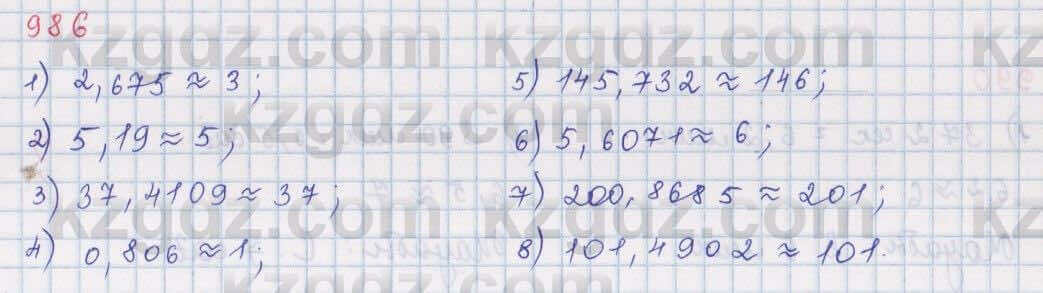 986
1) 2,675 ≈ 3;
2) 5,19 ≈ 5;
3) 37,4109 ≈ 37;
4) 0,806 ≈ 1;
5) 145,732 ≈ 146;
6) 5,6071 ≈ 6;
7) 200,8685 ≈ 201;
8) 101,4902 ≈ 101.
kzgdz.com
kzgdz.com
kzgdz.com
kzgdz.com
kzgdz.com
kzgdz.com